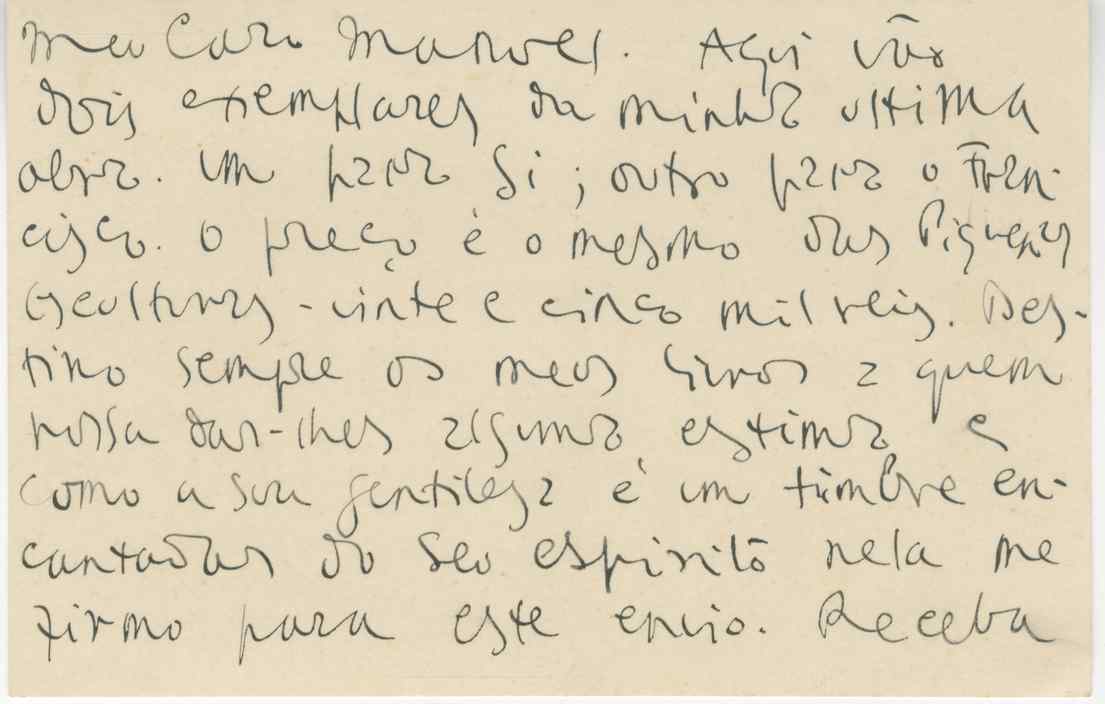 Meu Caro Manoel. Aqui vão
dois exemplares da minha ultima
obra. Um para Si; outro para o Fran-
cisco. O preço é o mesmo das Piquenas
Esculturas - vinte e cinco mil reis. Des-
tino sempre os meus livros a quem
possa dar-lhes alguma estima e
como a sua gentilesa é um timbre en-
cantador do seu espirito nela me
firmo para este envio. Receba